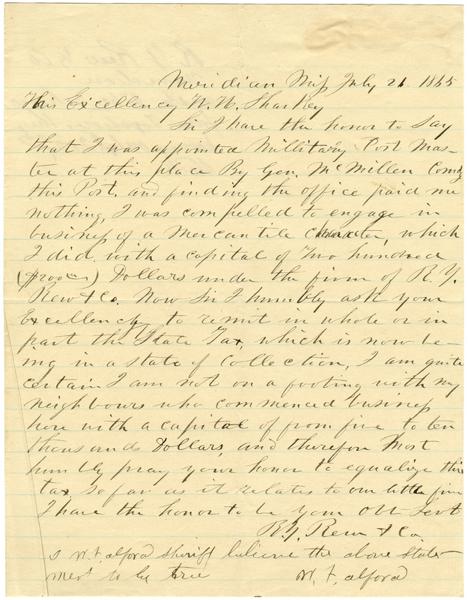 Meridian Miss July 21 1865
His Excellency W. W. Sharkey
Sir I have the honor to say
that I was appointed Millitary Post Mas-
ter at this place By Gen. McMillen Comdg
this Post. and finding the office paid me
nothing, I was compelled to engage in
business of a Mercantile Character, which
I did, with a capital of Two hundred
Dollars under the firm of R. Y.
Rew & Co. Now Sir I humbly ask your
Excellency to remit in whole or in
part the State Tax, which is now be-
ing in a state of Collection, I am quite
certain I am not on a footing with my
neighbours who commenced business
here with a capital of from five to ten
thousands Dollars, and therefore Most
humbly pray your honor to equalize this
tax so far as it relates to our little firm
I have the honor to be your Obt Servt
R. Y. Rew & Co.
I W. F. alford sheriff believe the above state-
ment to be true W. F. alford